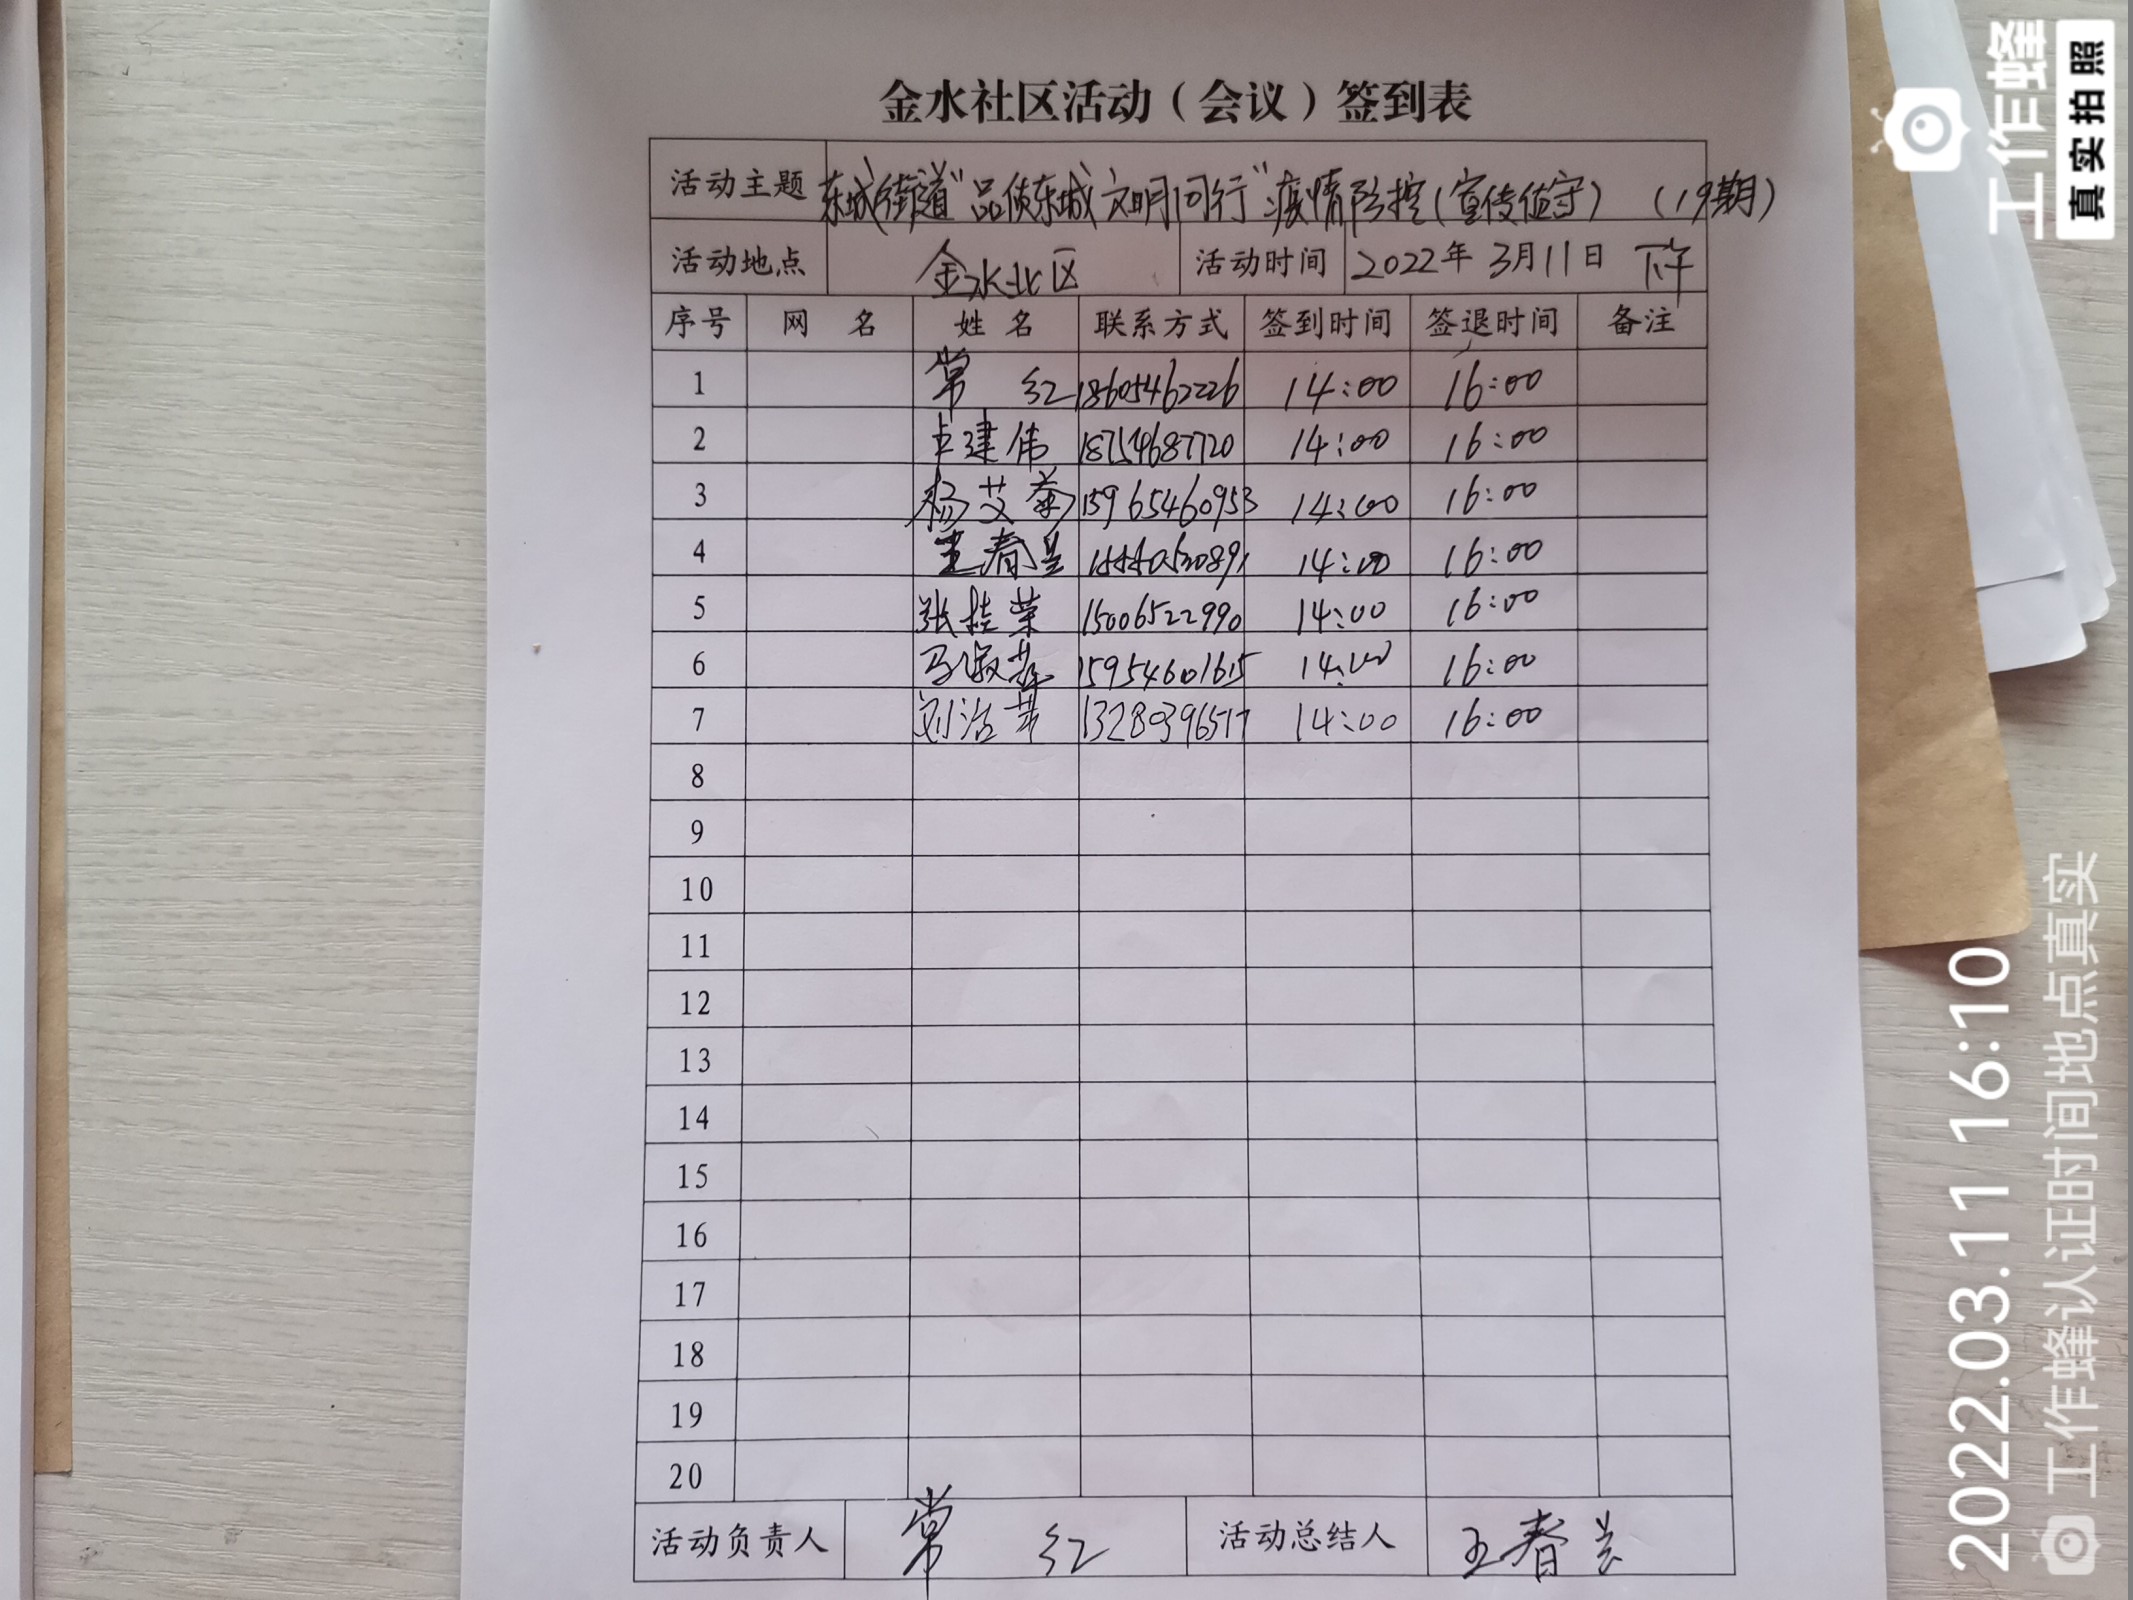 金水社区活动（会议）签到表
活动主题 东城街道"品质东城 文明同行"疫情防控（宣传值守）（19期）
活动地点 金水北区 活动时间 2022年3月11日 下午
序号 网 名 姓 名 联系方式 签到时间 签退时间 备注
1 常 红 18605462226 14:00 16:00
2 卢建伟 18754687720 14:00 16:00
3 杨艾菊 15965460953 14:00 16:00
4 王春兰 14:00 16:00
5 张桂荣 15006522990 14:00 16:00
6 马淑 15954601615 14:00 16:00
7 刘洁 13280396517 14:00 16:00
8
9
10
11
12
13
14
15
16
17
18
19
20
活动负责人 常 红 活动总结人 王春兰
工作蜂
真实拍照
2022.03.11 16:10
工作蜂认证时间地点真实